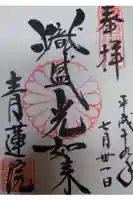 奉拝
平成十九年
七月廿一日
熾盛光如来
青蓮院